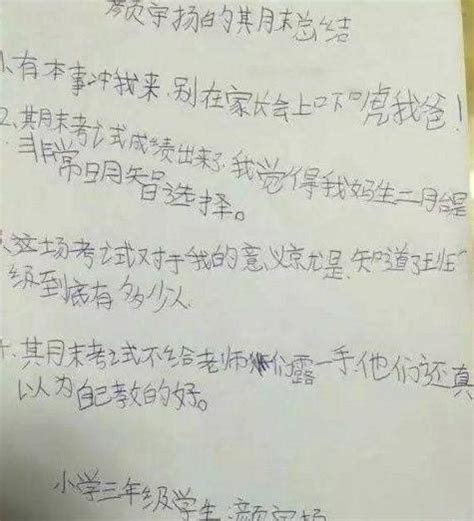 颜宇扬的期末总结
1、有本事冲我来,别在家长会上吓唬我爸!
2、期末考试成绩出来了,我觉得我妈生二胎是
非常明智选择。
、这场考试对于我的意义就是,知道了班
级到底有多少人
、期末考试不给老师们露一手,他们还真
以为自己教的好。
小学三年级学生:颜宇扬